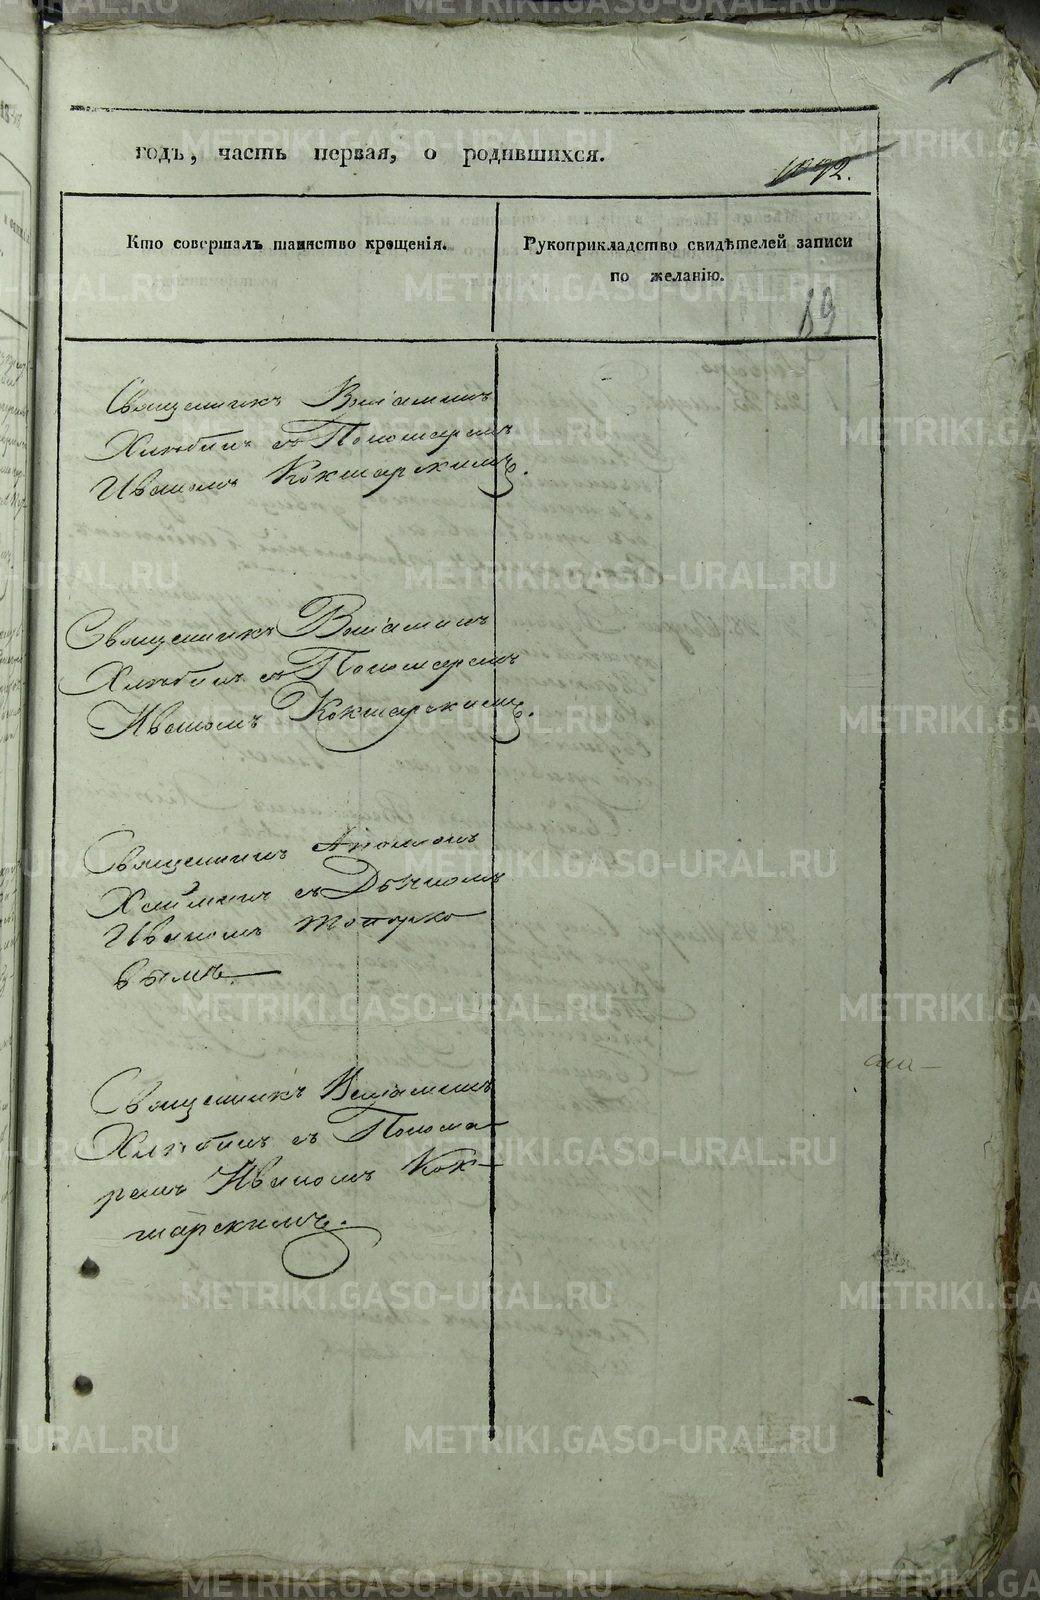 годъ, часть первая, о родившихся.
Кто совершалъ таинство крещенія.
Рукоприкладство свидѣтелей записи
по желанію.
89
Священникъ Веніаминъ
Хлѣбинъ съ Пономаремъ
Иваномъ Кокшарскимъ.
Священникъ Веніаминъ
Хлѣбинъ съ Пономаремъ
Иваномъ Кокшарскимъ.
Священникъ
съ Дьячкомъ
Иваномъ Топорко
вымъ.
Священникъ Веніаминъ
Хлѣбинъ съ Понома
ремъ Иваномъ Кок-
шарскимъ.
METRIKI.GASO-URAL.RU